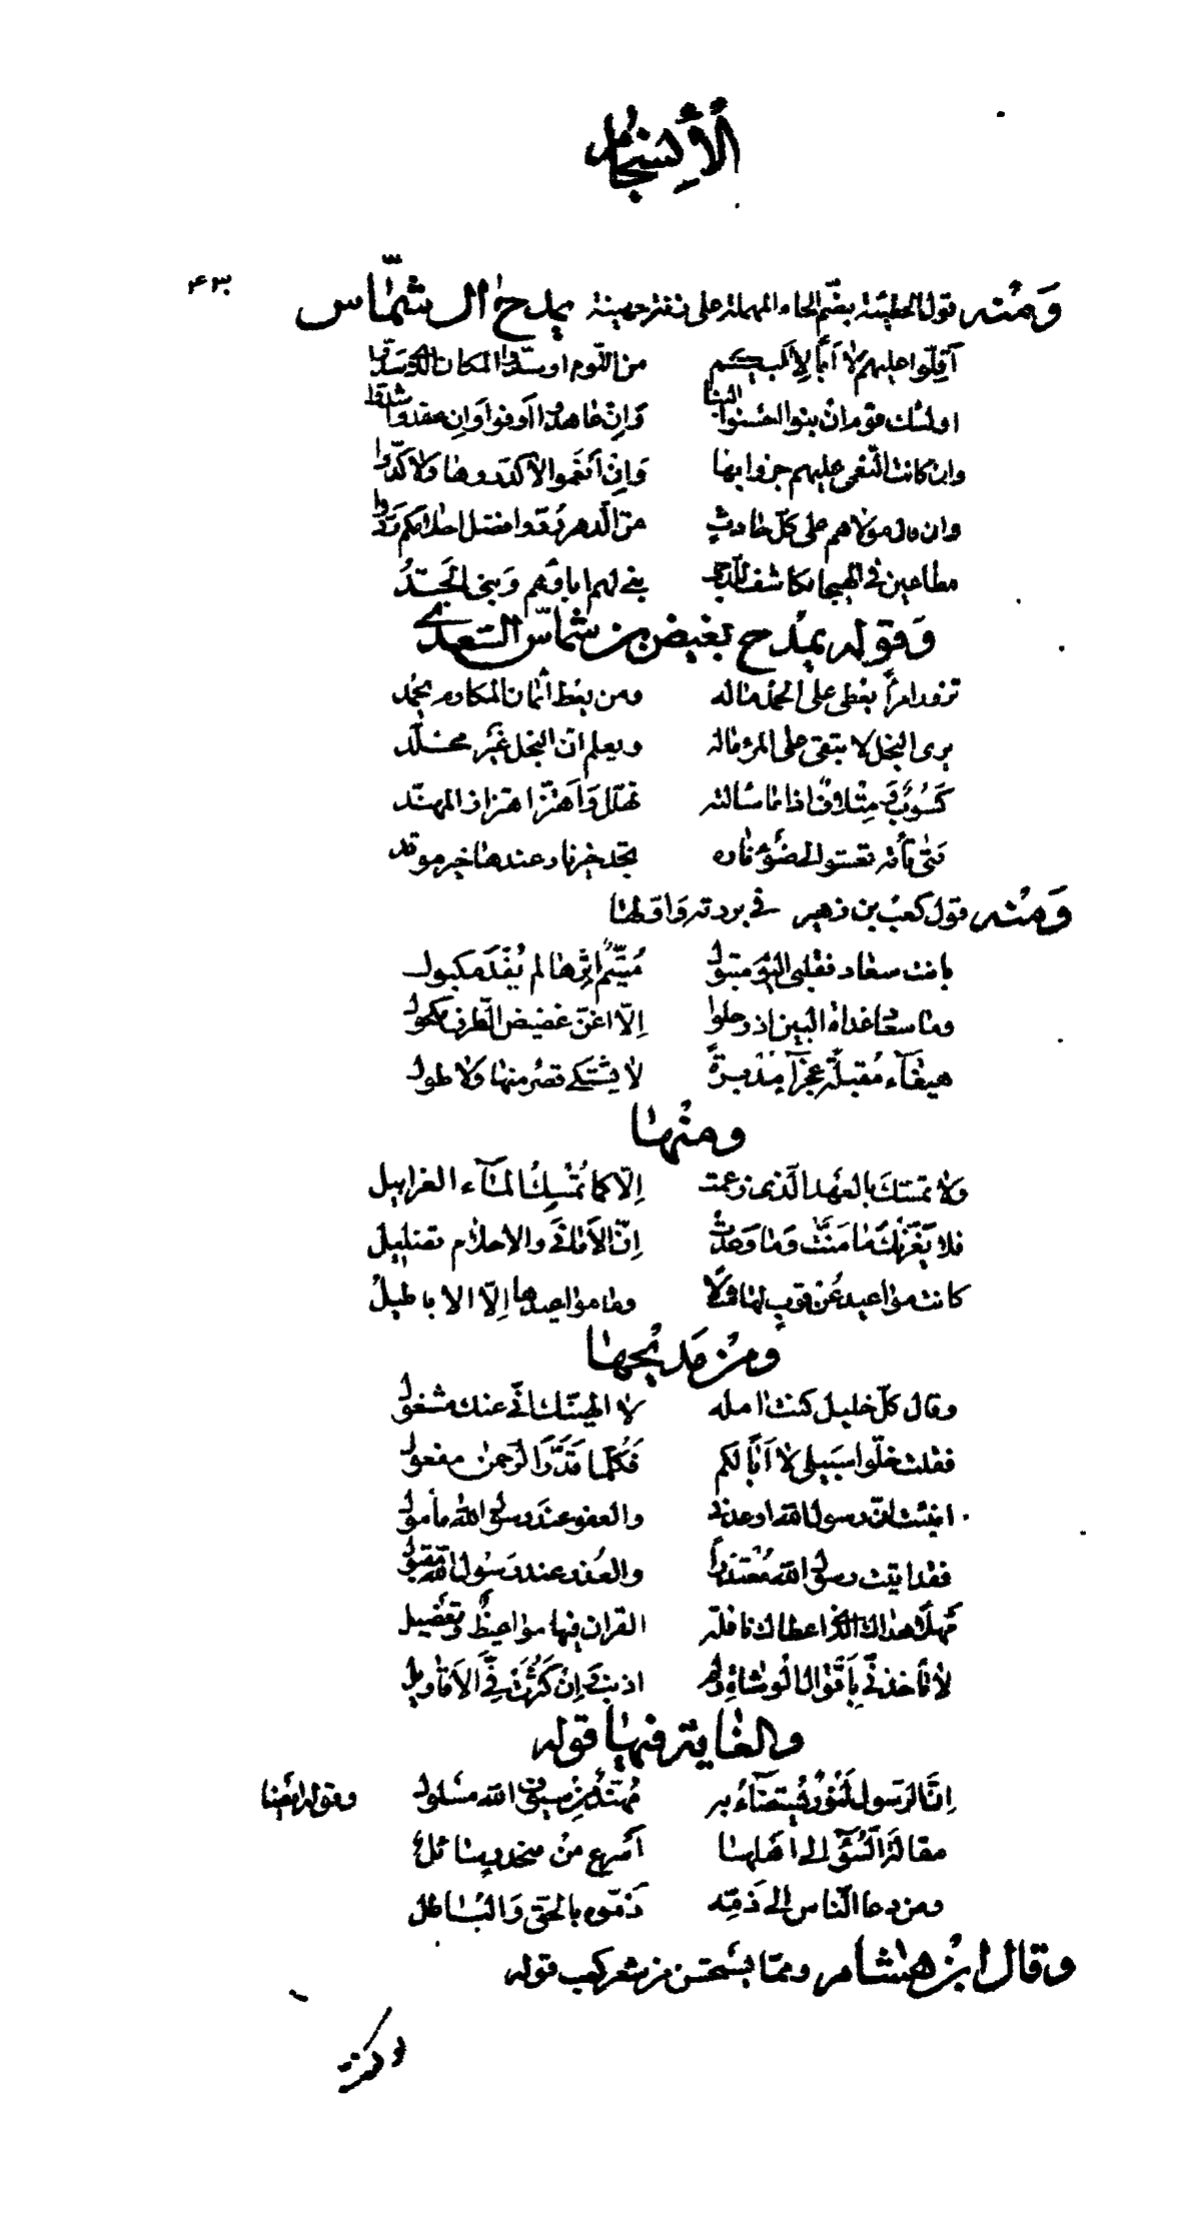 الأنسجام
٤٣٠
ومنه قول الحطيئة بضم الحاء المهملة على زنة جهينة يمدح ال شماس
أقلوا عليهم لا أبا لأبيكم من اللوم او سدوا المكان الذي سدوا
اولئك قوم ان بنوا احسنوا البنا وان عاهدوا أوفوا وان عقدوا شدوا
وان كانت النعمى عليهم جزوا بها وان أنعموا لا كدروها ولا كدوا
وان قال مولاهم على كل حادث من الدهر ردوا فضل احلامكم ردوا
مطاعين في الهيجا مكاشف للدجى بنى لهم اباؤهم وبنى الجد
وقوله يمدح بغيض بن شماس السعدي
تزور امرأ يعطى على الحمد ماله ومن يعط أثمان المكارم يحمد
يرى البخل لا يبقى على المرء ماله ويعلم ان البخل غير مخلد
كسوب ومتلاف اذا ما سالته تهلل واهتز اهتزاز المهند
متى تأته تعشو الى ضوء ناره تجد خير نار عندها خير موقد
ومنه قول كعب بن زهير في بردته واولها
بانت سعاد فقلبى اليوم متبول متيم إثرها لم يفد مكبول
وما سعاد غداة البين اذ رحلوا الا اغن غضيض الطرف مكحول
هيفآء مقبلة عجزآء مدبرة لا يشتكى قصر منها ولا طول
ومنها
ولا تمسك بالعهد الذى زعمت الا كما تمسك المآء الغرابيل
فلا يغرنك ما منت وما وعدت ان الأمانى والاحلام تضليل
كانت مواعيد عرقوب لها مثلا وما مواعيدها الا الاباطيل
ومن مديحها
وقال كل خليل كنت امله لا الهينك انى عنك مشغول
فقلت خلوا سبيلى لا أبا لكم فكلما قدر الرحمن مفعول
انبئت ان رسول الله اوعدنى والعفو عند رسول الله مأمول
فقد اتيت رسول الله معتذرا والعذر عند رسول الله مقبول
مهلا هداك الذى اعطاك نافلة القران فيها مواعيظ وتفضيل
لا تأخذنى بأقوال الوشاة ولم اذنب وان كثرت فى الأقاويل
والغاية فيها قوله
ان الرسول لنور يستضآء به مهند من سيوف الله مسلول وقوله ايضا
مقالة السوء الى أهلها أسرع من منحدر سائل
ومن دعا الناس الى ذمه ذموه بالحق وبالباطل
وقال ابن هشام ومما يستحسن من شعر كعب قوله